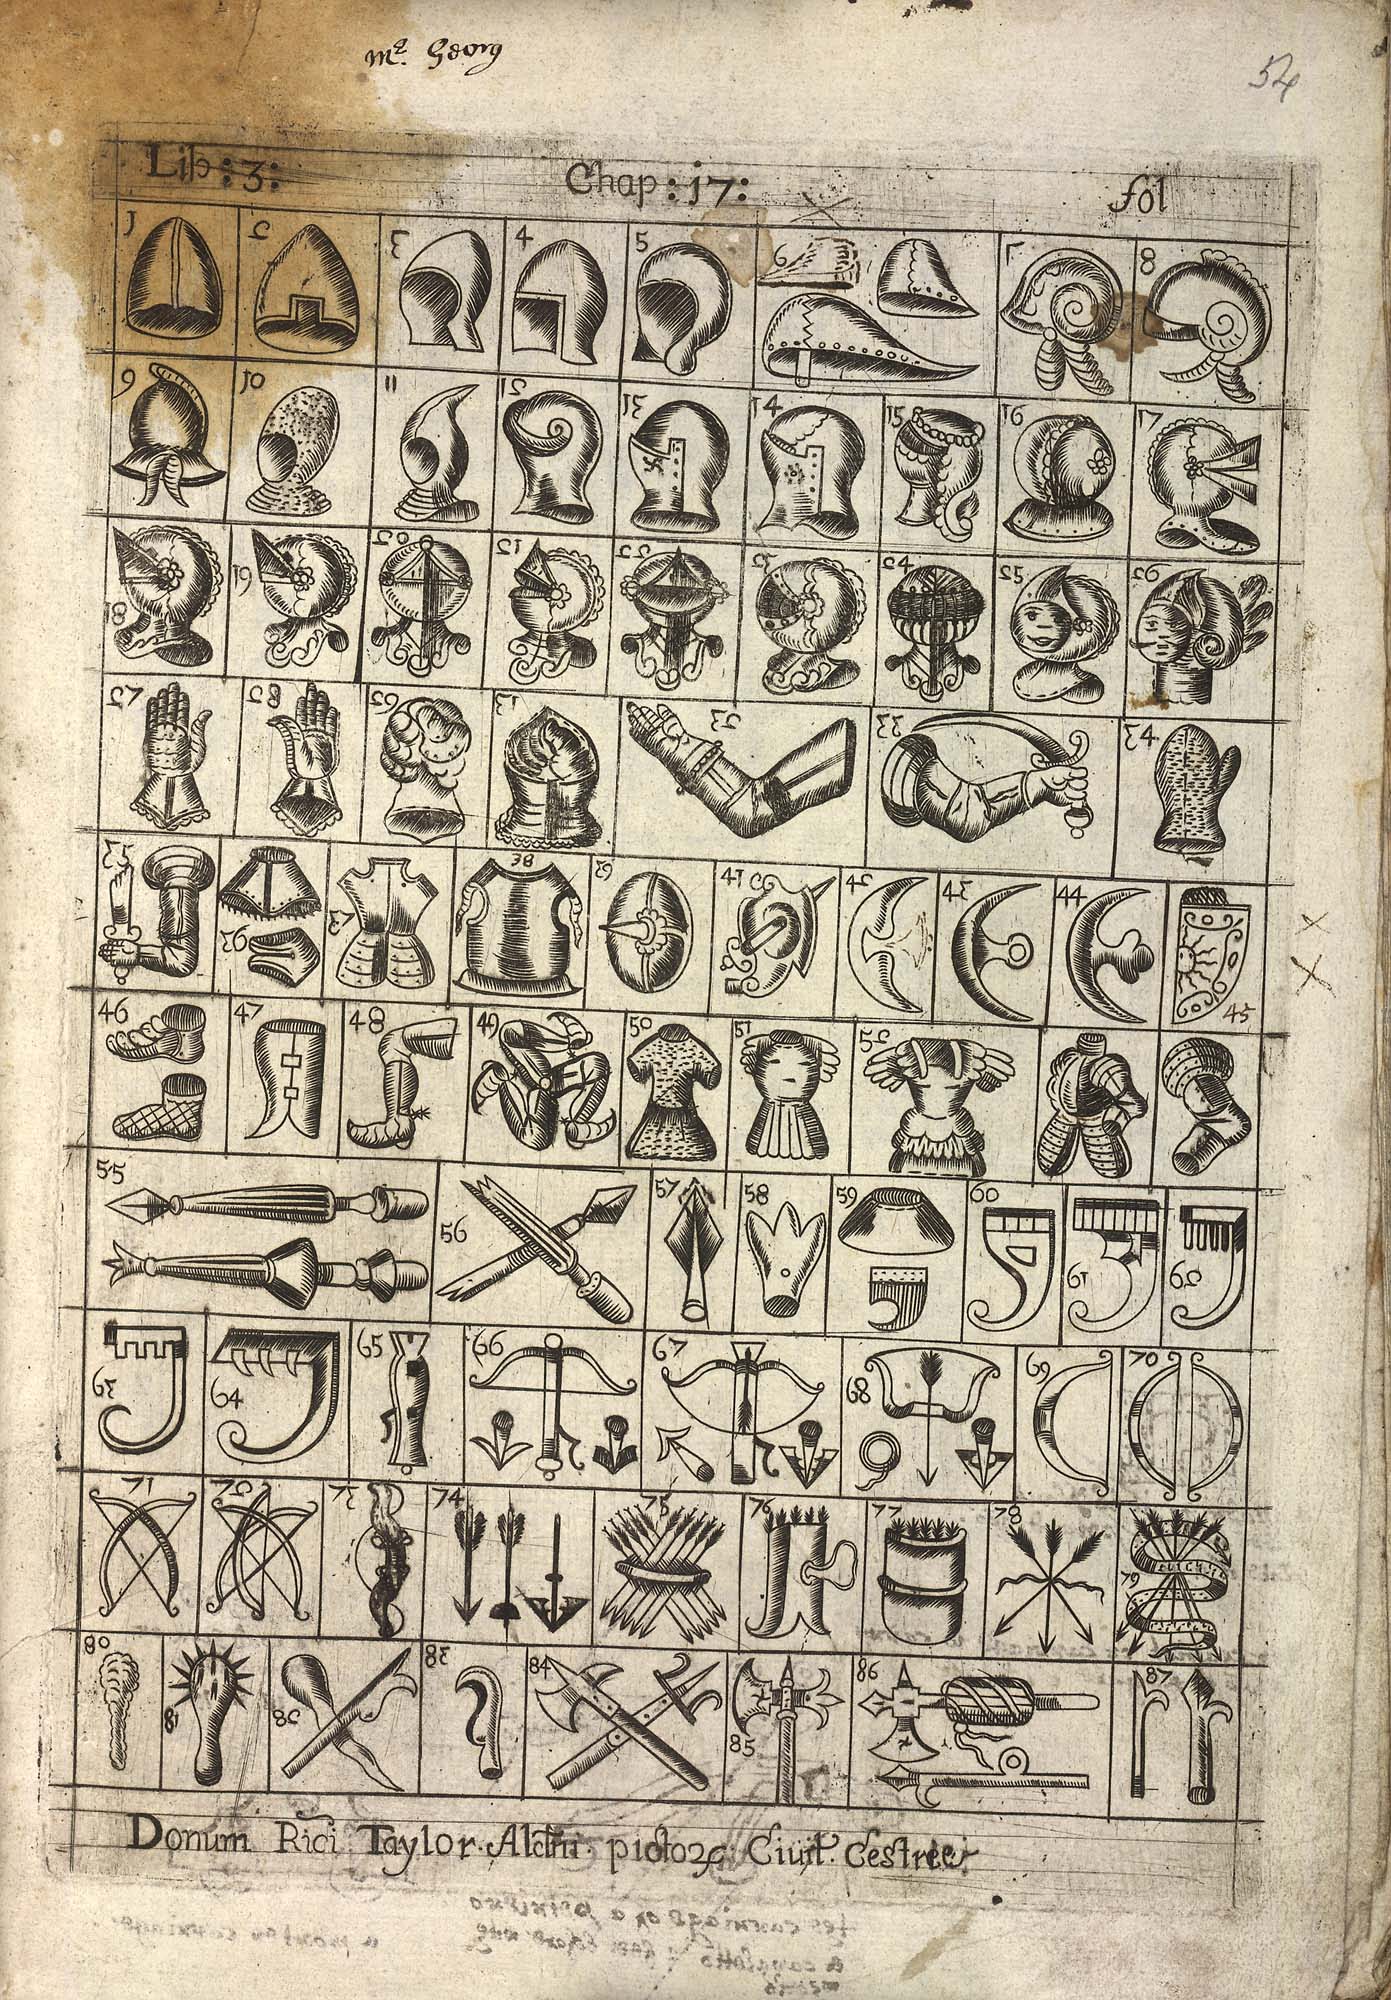 Mr. Georg
54
Lib : 3 : Chap : 17 : fol
1 2 3 4 5 6 7 8
9 10 11 12 13 14 15 16 17
18 19 20 21 22 23 24 25 26
27 28 29 31 32 33 34
35 36 37 38 39 41 42 43 44 45
46 47 48 49 50 51 52
55 56 57 58 59 60 61 62
63 64 65 66 67 68 69 70
71 72 73 74 75 76 77 78 79
80 81 82 83 84 85 86 87
Donum Rici Taylor Aldni pictor Civit Cestree